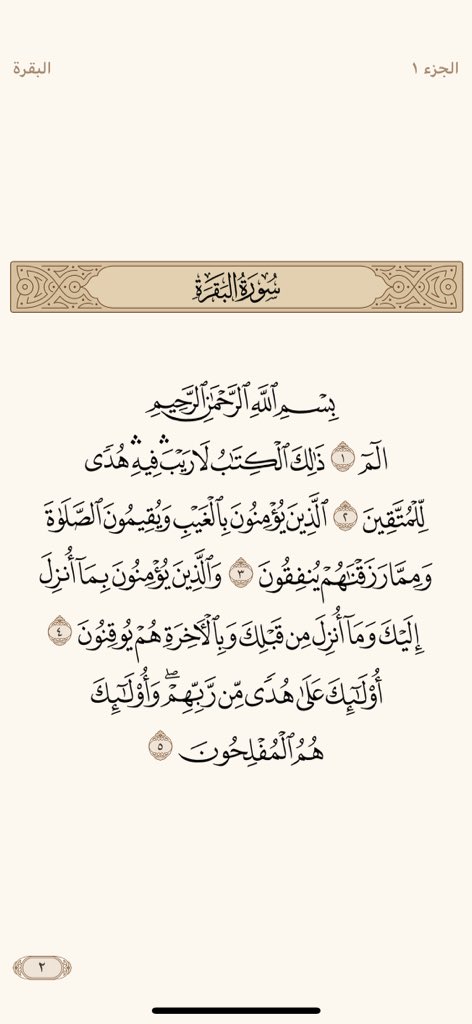 الجزء ١
البقرة
سُورَةُ البَقَرَةِ
بِسْمِ ٱللَّهِ ٱلرَّحْمَٰنِ ٱلرَّحِيمِ
الٓمٓ ١ ذَٰلِكَ ٱلْكِتَٰبُ لَا رَيْبَ ۛ فِيهِ ۛ هُدًى
لِّلْمُتَّقِينَ ٢ ٱلَّذِينَ يُؤْمِنُونَ بِٱلْغَيْبِ وَيُقِيمُونَ ٱلصَّلَوٰةَ
وَمِمَّا رَزَقْنَٰهُمْ يُنفِقُونَ ٣ وَٱلَّذِينَ يُؤْمِنُونَ بِمَآ أُنزِلَ
إِلَيْكَ وَمَآ أُنزِلَ مِن قَبْلِكَ وَبِٱلْءَاخِرَةِ هُمْ يُوقِنُونَ ٤
أُو۟لَٰٓئِكَ عَلَىٰ هُدًى مِّن رَّبِّهِمْ ۖ وَأُو۟لَٰٓئِكَ
هُمُ ٱلْمُفْلِحُونَ ٥
٢